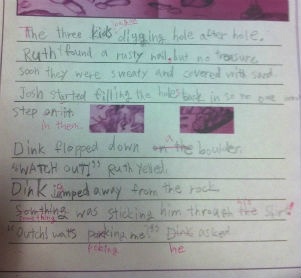 The three kids digging hole after hole.
Ruth found a rusty nail, but no treasure
Soon they were sweaty and covered with sand.
Josh started filling the holes back in so no one
step on it.
in them.
Dink flopped down on the a boulder.
"WATCH OUT!" Ruth yelled.
Dink jumped away from the rock
Something was sticking him through the
something
"Outch! wats poking me!" Dink asked
he